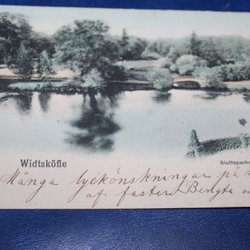 Widtsköfle
Slottsparke
Många lyckönskningar på
af faster Bengta